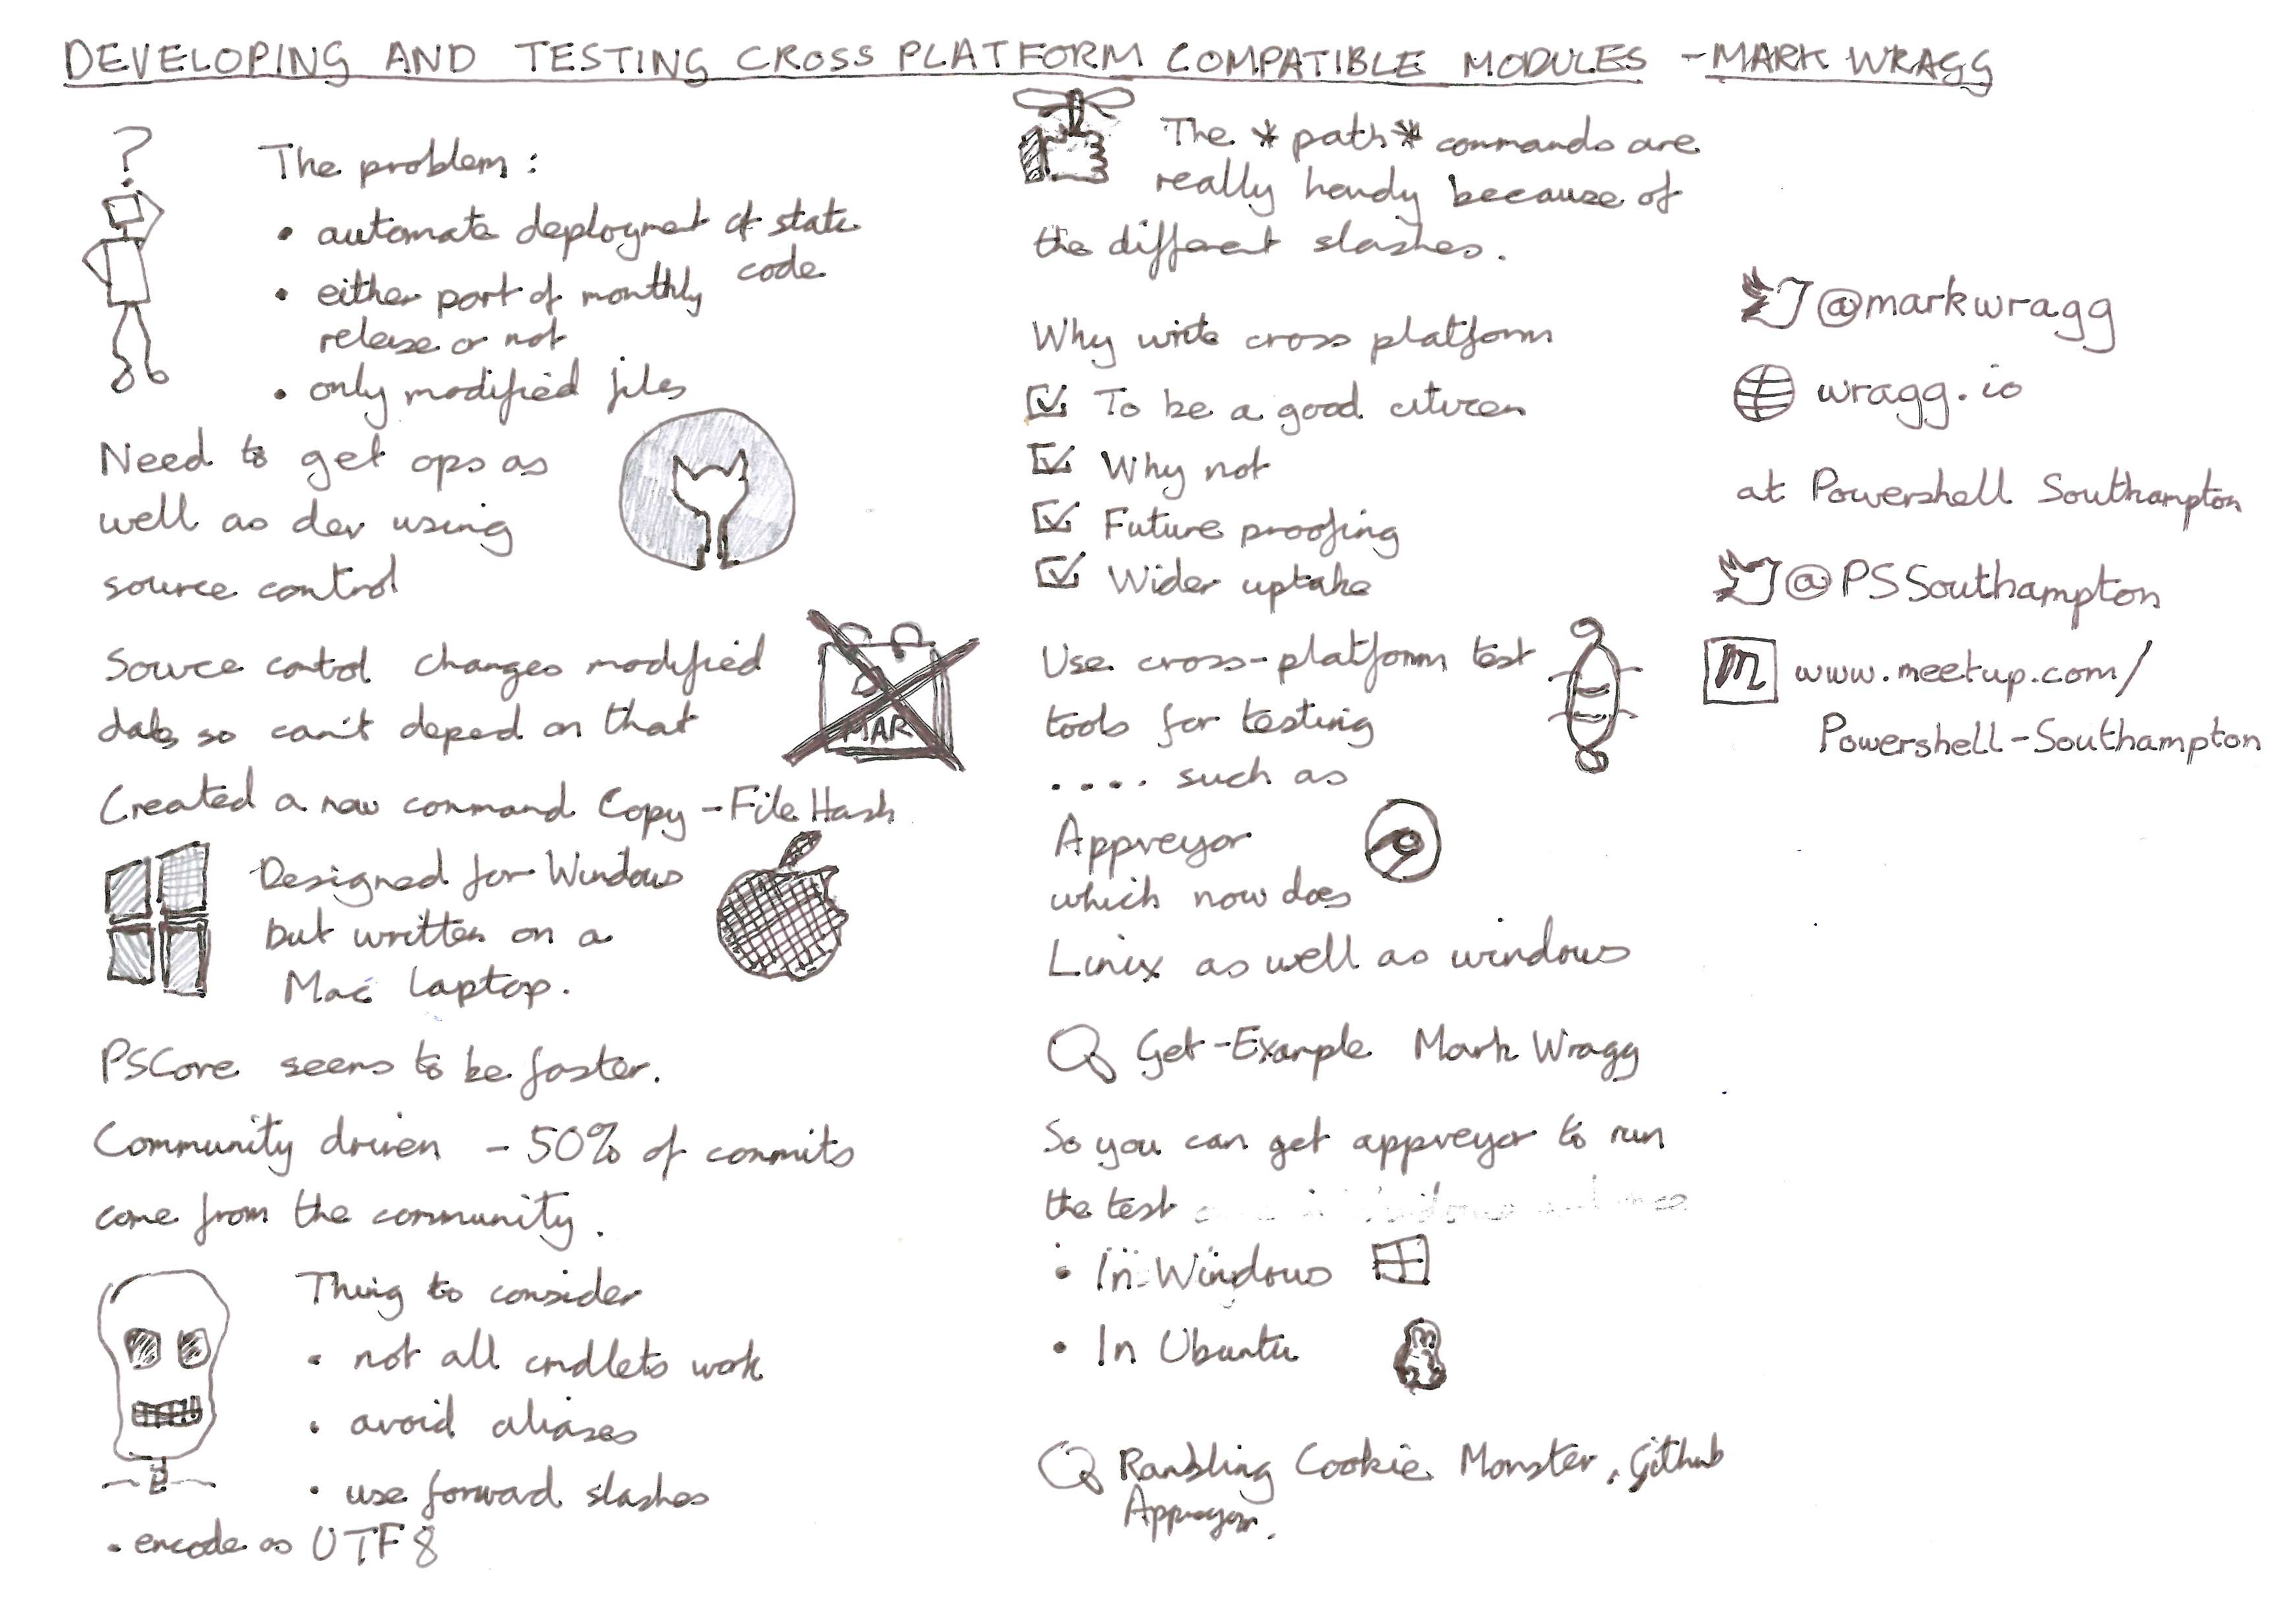 DEVELOPING AND TESTING CROSS PLATFORM COMPATIBLE MODULES - MARK WRAGG
?
The problem:
• automate deployment of static
code
• either part of monthly
release or not
• only modified files
Need to get ops as
well as dev using
source control
Source control changes modified
date so can't depend on that
MAR
Created a new command Copy-FileHash
Designed for Windows
but written on a
Mac laptop.
PSCore seems to be faster.
Community driven - 50% of commits
come from the community.
Thing to consider
• not all cmdlets work
• avoid aliases
• use forward slashes
• encode as UTF8
The *path* commands are
really handy because of
the different slashes.
Why write cross platform
To be a good citizen
Why not
Future proofing
Wider uptake
Use cross-platform test
tools for testing
.... such as
Appveyor
which now does
Linux as well as windows
Get-Example Mark Wragg
So you can get appveyor to run
the test
• In Windows
• In Ubuntu
Rambling Cookie Monster, Github
Appveyor.
@markwragg
wragg.io
at Powershell Southampton
@PSSouthampton
m www.meetup.com/
Powershell-Southampton